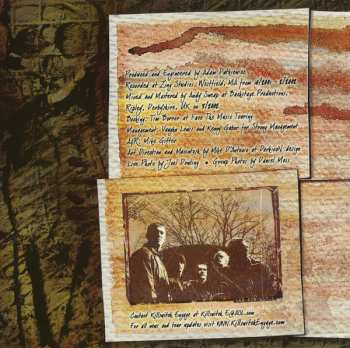 Produced and Engineered by Adam Dutkiewicz
Recorded at Zing Studios, Westfield, MA from 11/2001 - 2/2002
Mixed and Mastered by Andy Sneap at Backstage Productions,
Ripley, Derbyshire, UK in 2/2002
Booking: Tim Borror at Face The Music Touring
Management: Vaughn Lewis and Kenny Gabor for Strong Management
A&R: Mike Gitter
Art Direction and Macintosh by Mike D'Antonio at Darkicon design
Live Photo by Joel Dowling * Group Photos by Daniel Moss
Contact Killswitch Engage at Killswitch E@AOL.com
For all news and tour updates visit WWW.KillswitchEngage.com